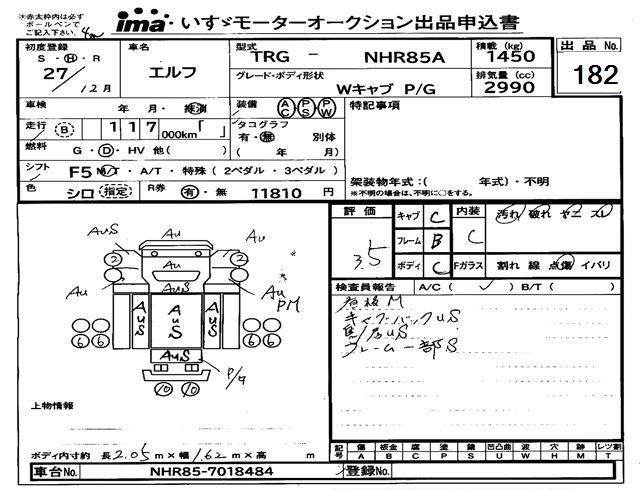 ※赤太枠内は必ず
ボールペンで
ご記入下さい。
ima いすゞモーターオークション出品申込書
初度登録
S・H・R
27/12月
車名
エルフ
型式
TRG - NHR85A
積載(kg)
1450
出品 No.
182
グレード・ボディ形状
Wキャブ P/G
排気量(cc)
2990
車検 年 月・抹消
装備 AC PS PW
特記事項
走行 B 117,000km「 」
タコグラフ
有・無 別体
( 年 月)
燃料 G・D・HV 他( )
シフト F5 M/T・A/T・特殊(2ペダル・3ペダル)
架装物年式:( 年式)・不明
※不明の場合は、不明に○をする。
色 シロ 指定
R券 有・無 11810 円
評価
3.5
キャブ C
フレーム B
ボディ C
内装 C
汚れ 破れ ヤニ スレ
Fガラス 割れ 線 点傷 イバリ
検査員報告 A/C( ✓ ) B/T( )
看板M
キャブバックUS
フレーム一部S
AuS
Au
Au
2
Au
2
Au
AuS
Au
Au
PM
AuS
AuS
AuS
6 6
6 6
AuS
P/G
10 10
上物情報
ボディ内寸約 長 2.05 m×幅 1.62 m×高 m
記号 傷 板金 腐 塗 錆 凹凸曲 波 穴 跡 レツ割
A B C P S U W H M T
車台No. NHR85-7018484
登録No.